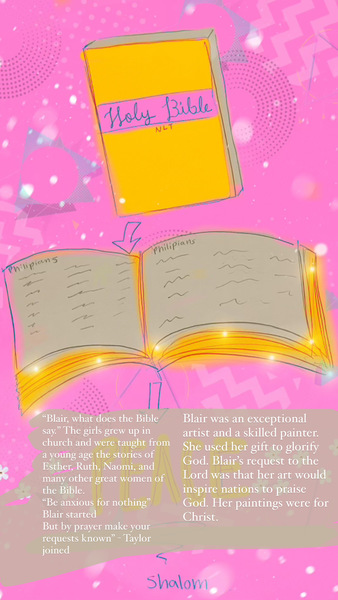 Holy Bible
NLT
Philipians
Philipians
"Blair, what does the Bible
say." The girls grew up in
church and were taught from
a young age the stories of
Esther, Ruth, Naomi, and
many other great women of
the Bible.
"Be anxious for nothing"
Blair started
But by prayer make your
requests known" - Taylor
joined
Blair was an exceptional
artist and a skilled painter.
She used her gift to glorify
God. Blair's request to the
Lord was that her art would
inspire nations to praise
God. Her paintings were for
Christ.
Shalom